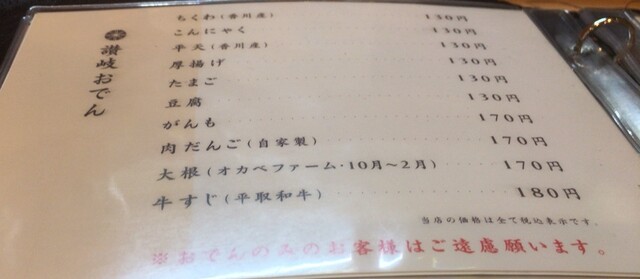 讃岐おでん
ちくわ(香川産) 130円
こんにゃく 130円
平天(香川産) 130円
厚揚げ 130円
たまご 130円
豆腐 130円
がんも 170円
肉だんご(自家製) 170円
大根(オカベファーム・10月〜2月) 170円
牛すじ(平取和牛) 180円
当店の価格は全て税込表示です。
※おでんのみのお客様はご遠慮願います。